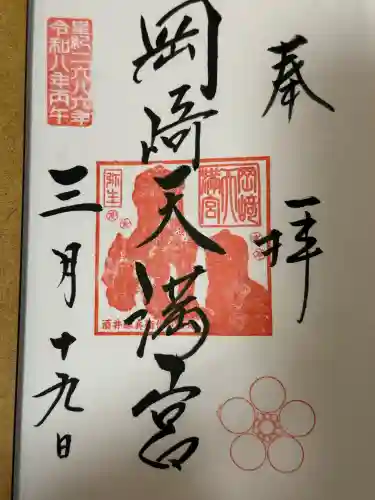 奉拝
岡崎天満宮
岡﨑
天
満宮
弥生
皇紀二六八六年
令和八年丙午
三月十九日